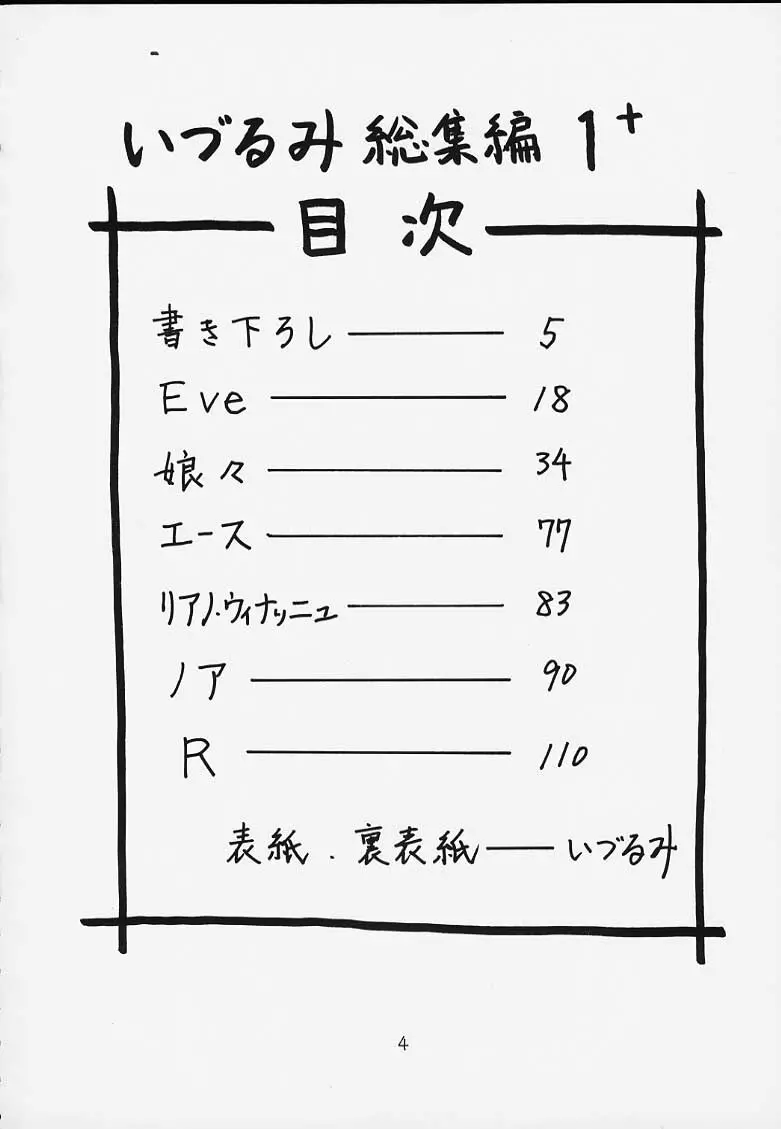 いづるみ総集編 1+
目次
書き下ろし 5
Eve 18
娘々 34
エース 77
リアノ・ヴィナッニュ 83
ノア 90
R 110
表紙・裏表紙 いづるみ
4